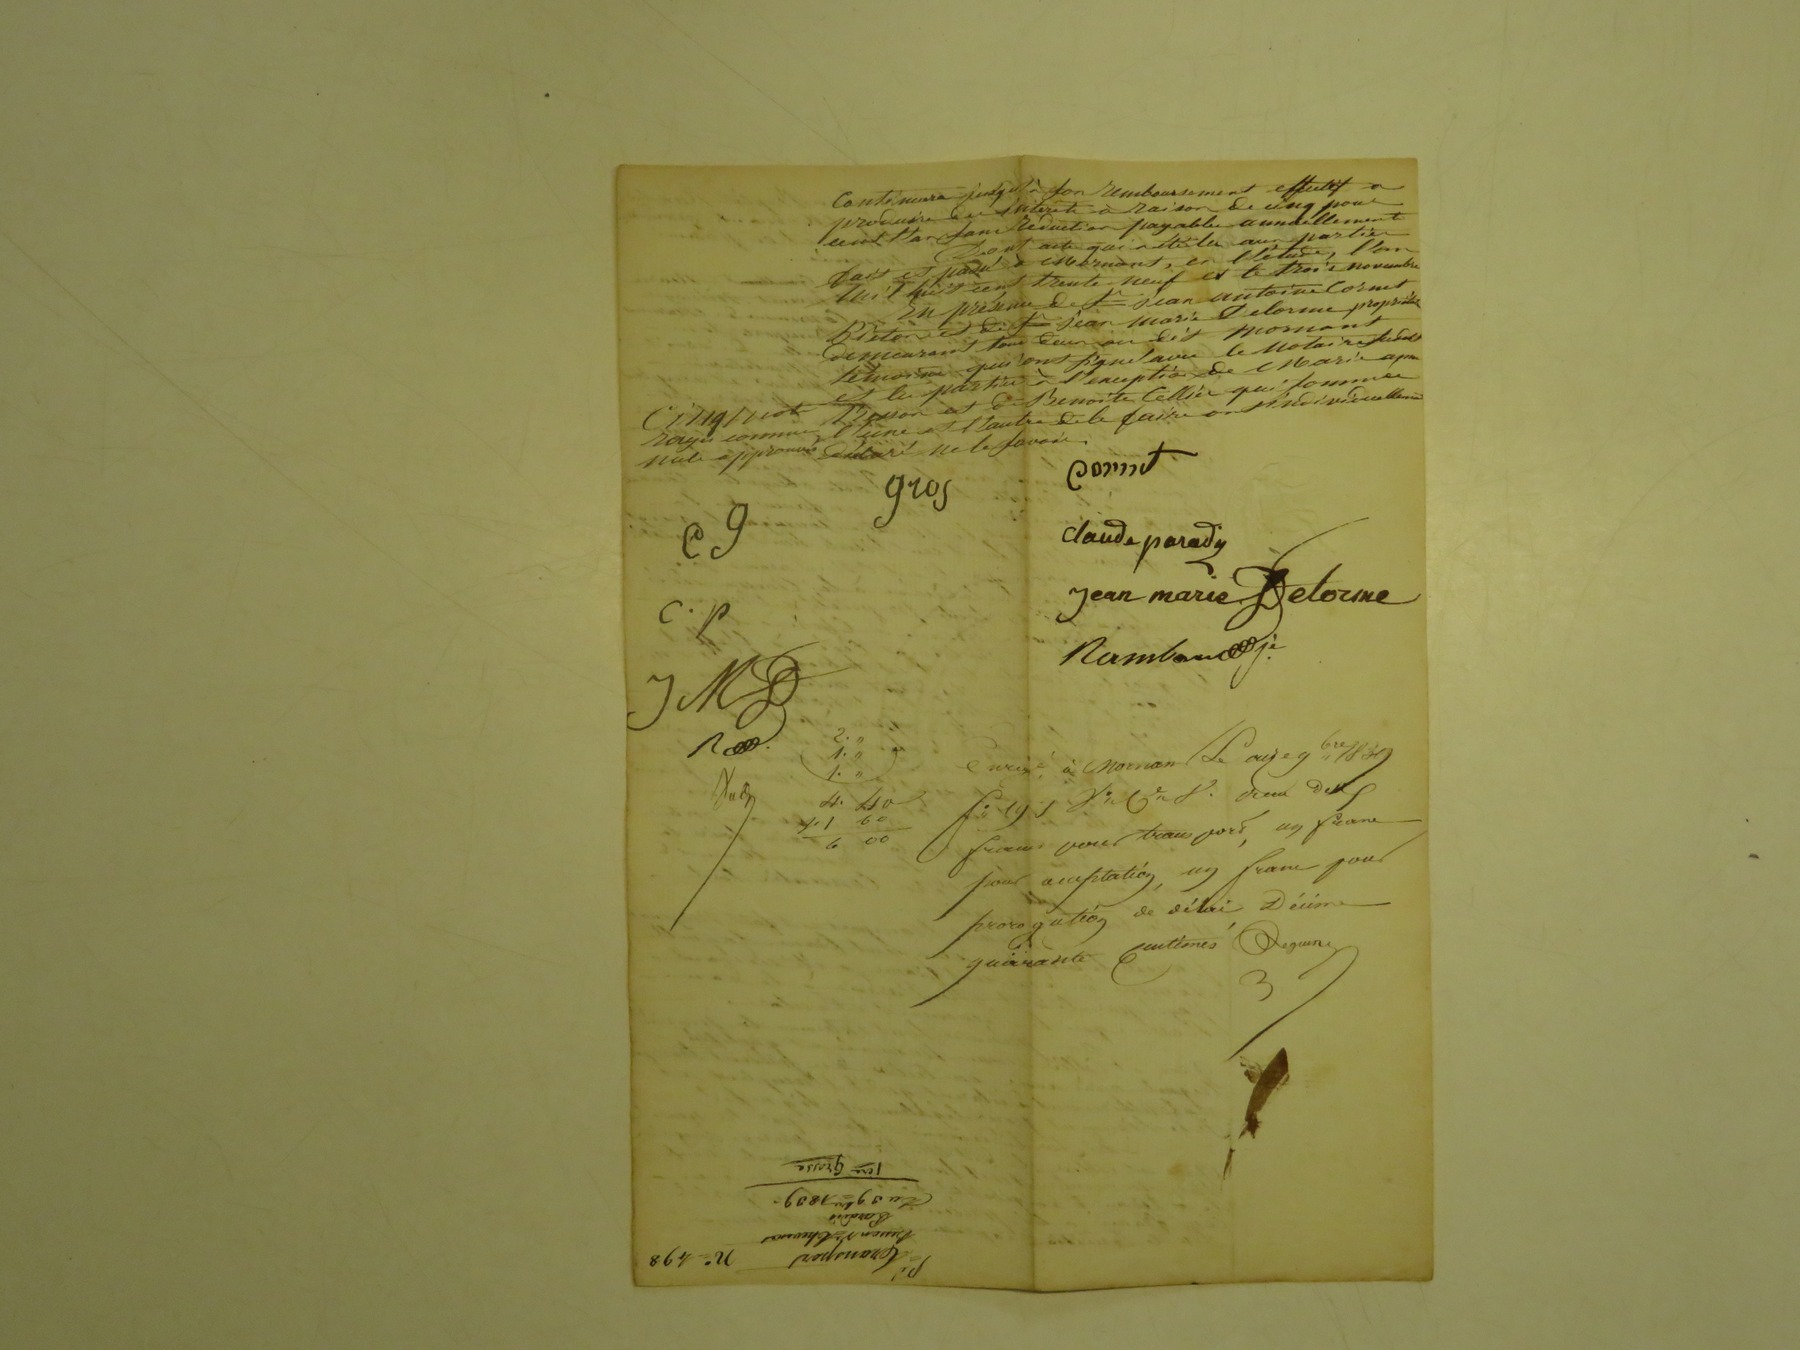 Continuera jusqu'à son remboursement effectif a
produire des intérêts à raison de cinq pour
cent l'an sans réduction payables annuellement
Dont acte qui a été lu aux parties
fait et passé à Mornant, en l'étude, l'an
mil huit cent trente neuf et le trois novembre
En présence de Sr Jean Antoine Cornet
Piéton et de Sr Jean Marie Delorme propriétaire
demeurant tous deux au dit Mornant
témoins qui ont signé avec le Notaire
et les parties à l'exception de Marie
Cinq mots Besson et de Benoite Cellier qui sommées
rayés comme l'une et l'autre de le faire ont individuellement
nuls approuvés déclaré ne le savoir.
gros Cornet
C g
claude parady
C. p
jean marie Delorme
J M D
Rambaud je
R
2. "
1. "
1. "
4. 40
1 60
6 00
Enregé à Mornant Le onze 9bre 1839
fo 19 deux
francs pour transport, un franc
pour acceptation, un franc pour
prorogation de délai Décime
quarante centimes
3
1ere Grosse
Du 3 9bre 1839
Transport
No 498